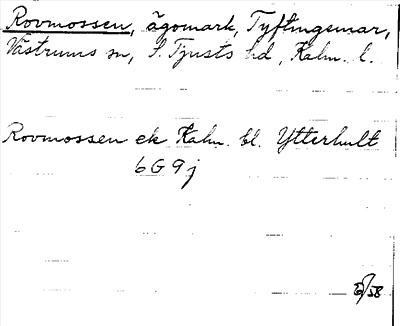 Rovmossen, ägomark, Tyftingemar,
Västrums sn, S. Tjusts hd, Kalm. l.
Rovmossen ek Kalm. bl. Ytterhult
6G9j
/58